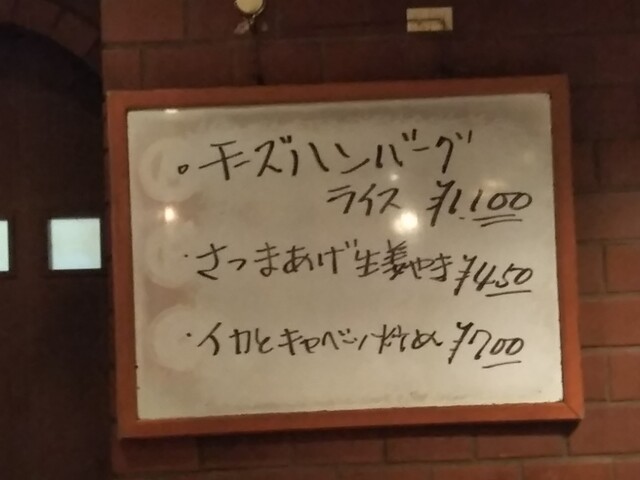 。チーズハンバーグ
ライス ¥1,100
・さつまあげ生姜やき ¥450
・イカとキャベツ炒め ¥700